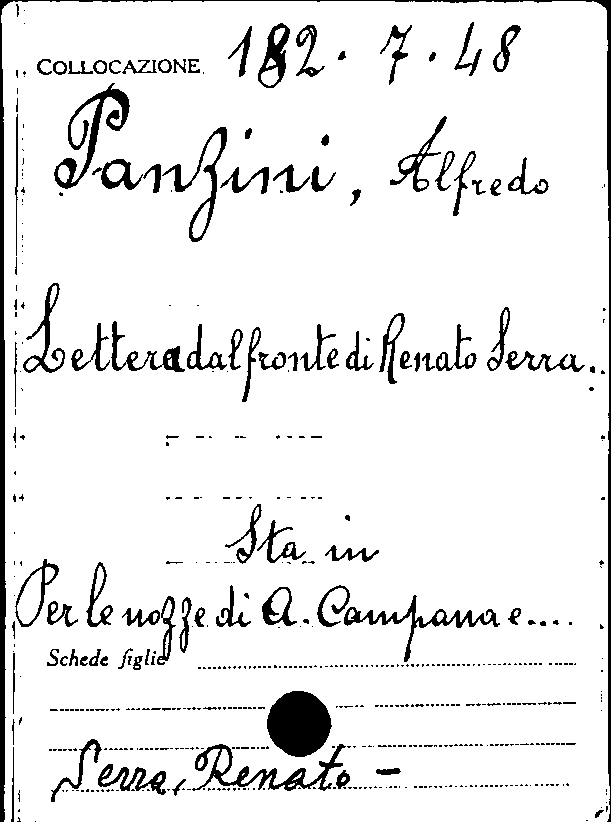 COLLOCAZIONE 182. 7. 48
Panzini, Alfredo
Lettera dal fronte di Renato Serra.
Sta in
Per le nozze di A. Campana e....
Schede figlie
Serra, Renato -